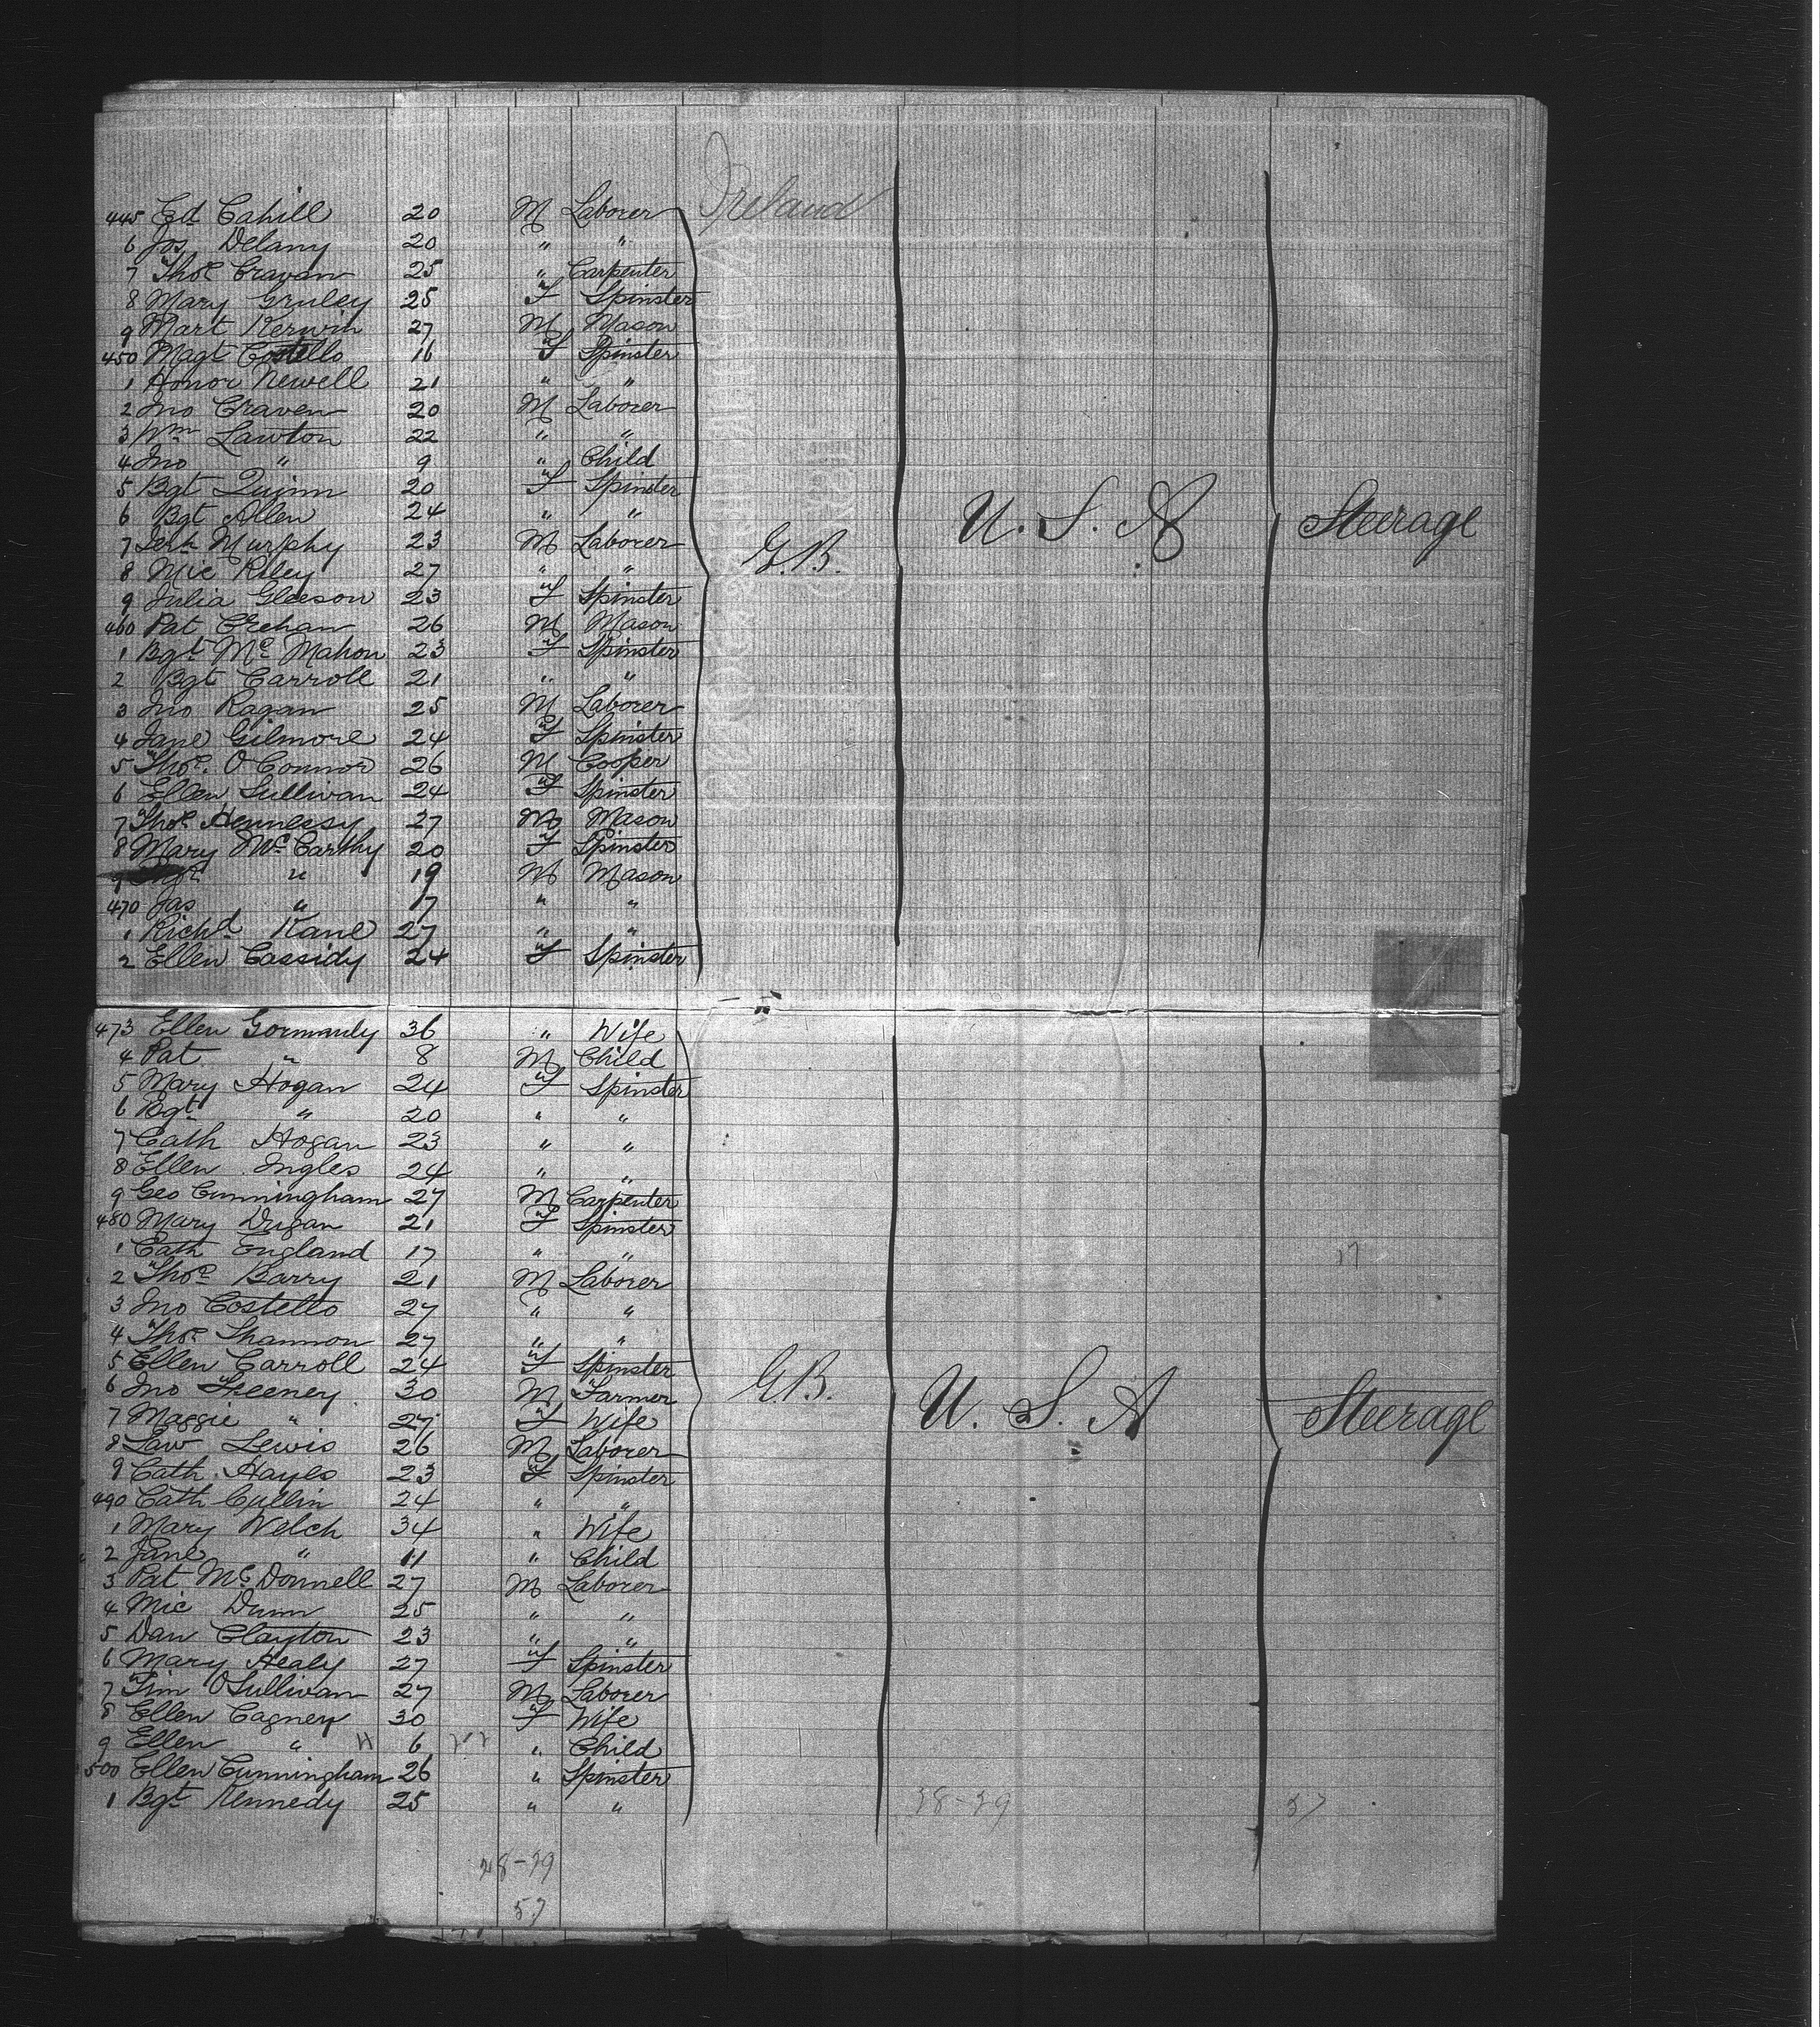 Ireland
445 Ed Cahill 20 M Laborer
6 Jos Delany 20 " "
7 Thos Cravan 25 " Carpenter
8 Mary Gruley 25 F Spinster
9 Mart Kerwin 27 M Mason
450 Magt Costello 16 F Spinster
1 Honor Newell 21 " "
2 Jno Craven 20 M Laborer
3 Wm Lawton 22 " "
4 Jno " 9 " Child
5 Bgt Quinn 20 F Spinster
6 Bgt Allen 24 " "
7 Jerh Murphy 23 M Laborer
8 Mic Riley 27 " "
9 Julia Gleeson 23 F Spinster
460 Pat Crehan 26 M Mason
1 Bgt McMahon 23 F Spinster
2 Bgt Carroll 21 " "
3 Jno Ragan 25 M Laborer
4 Jane Gilmore 24 F Spinster
5 Thos. O'Connor 26 M Cooper
6 Ellen Sullivan 24 F Spinster
7 Thos Hennessy 27 M Mason
8 Mary McCarthy 20 F Spinster
9 " 19 M Mason
470 Jas " 17 " "
1 Richd Kane 27 " "
2 Ellen Cassidy 24 F Spinster
G.B. U.S.A Steerage
473 Ellen Gormanly 36 " Wife
4 Pat " 8 M Child
5 Mary Hogan 24 F Spinster
6 Bgt " 20 " "
7 Cath Hogan 23 " "
8 Ellen Ingles 24 " "
9 Geo Cunningham 27 M Carpenter
480 Mary Dugan 21 F Spinster
1 Cath England 17 " "
2 Thos Barry 21 M Laborer
3 Jno Costello 27 " "
4 Thos Shannon 27 " "
5 Ellen Carroll 24 F Spinster
6 Jno Feeney 30 M Farmer
7 Maggie " 27 F Wife
8 Law Lewis 26 M Laborer
9 Cath. Hayes 23 F Spinster
490 Cath Cullin 24 " "
1 Mary Welch 34 " Wife
2 Jane " 11 " Child
3 Pat McDonnell 27 M Laborer
4 Mic Dunn 25 " "
5 Dan Clayton 23 " "
6 Mary Healy 27 F Spinster
7 Tim O'Sullivan 27 M Laborer
8 Ellen Cagney 30 F Wife
9 Ellen " 6 " Child
500 Ellen Cunningham 26 " Spinster
1 Bgt Kennedy 25 " "
G.B. U.S.A Steerage
17
38-39 57
48-39
57